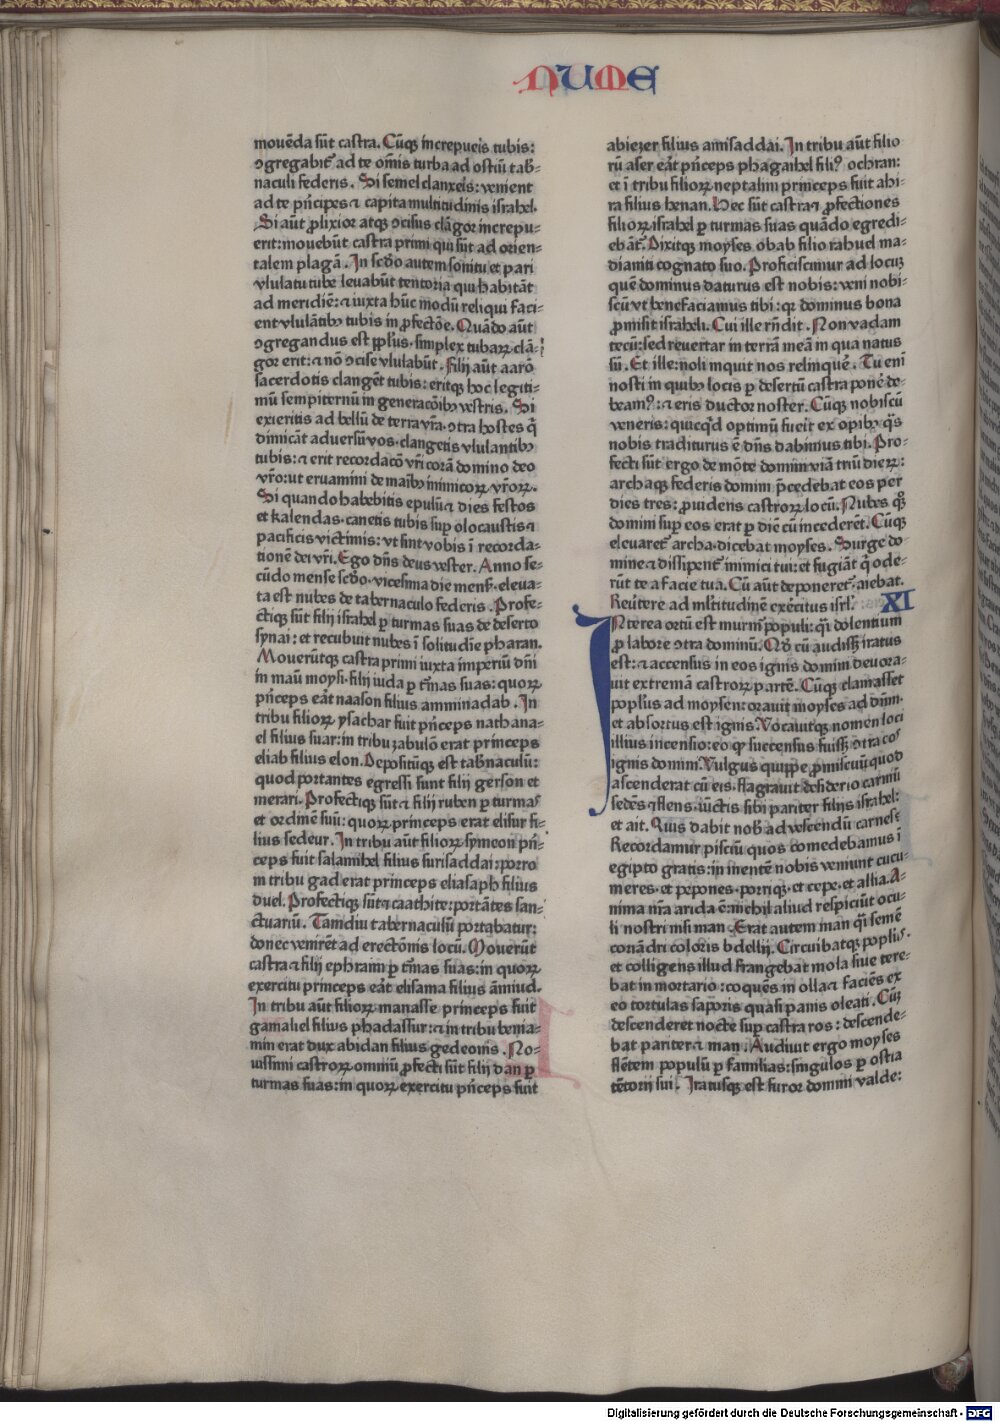 NUME
mouēda sūt castra. Cūqꝫ increpueis tubis:
ꝯgregabit᷑ ad te om̄is turba ad ostiū tab̄-
naculi federis. Si semel clanxeīs: venient
ad te pn̄cipes ⁊ capita multitudinis israhel.
Si aūt ꝓlixior atqꝫ ꝯcisus clāgor increpu-
erit: mouebūt castra primi qui sūt ad orien-
talem plagā. In scd̄o autem sonitu et pari
vlulatu tube leuabūt tentoria qui habitāt
ad meridiē: ⁊ iuxta hūc modū reliqui faci-
ent vlulātibꝫ tubis in ꝓfectōe. Quādo aūt
ꝯgregandus est pp̄lus. simplex tubaꝝ clā-
gor erit: ⁊ nō ꝯcise vlulabūt. Filij aūt aarō
sacerdotis clangēt tubis: eritqꝫ hoc legiti-
mū sempiternū in generacōibꝫ vestris. Si
exieritis ad bellū de terra vr̄a. ꝯtra hostes q̄
dimicāt aduersū vos. clangetis vlulantibꝫ
tubis: ⁊ erit recordacō vr̄i corā domino deo
vr̄o: ut eruamini de maibꝫ inimicoꝝ vr̄oꝝ.
Si quando habebitis epulū ⁊ dies festos
et kalendas. canetis tubis sup̄ olocaustis ⁊
pacificis victimis: vt sint vobis ī recorda-
tionē dei vr̄i. Ego dn̄s deus vester. Anno se-
cūdo mense scd̄o. vicesima die mens̄. eleua-
ta est nubes de tabernaculo federis. Profe-
ctiqꝫ sūt filij israhel ꝑ turmas suas de deserto
synai: et recubuit nubes ī solitudīe pharan.
Moueru̅tqꝫ castra primi iuxta imperiū dn̄i
in manū moysi. filij iuda ꝑ t᷑mas suas: quoꝝ
pn̄ceps eāt naason filius amminadab. In
tribu filioꝝ ysachar fuit pn̄ceps nathana-
el filius suar: in tribu zabulō erat princeps
eliab filius elon. Depositūqꝫ est tab̄naculū:
quod portantes egressi sunt filij gerson et
merari. Profectiqꝫ sūt ⁊ filij ruben ꝑ turmas
et ordinē suū: quoꝝ princeps erat elisur fi-
lius sedeur. In tribu aūt filioꝝ symeon pn̄-
ceps fuit salamihel filius surisaddai: porro
in tribu gad erat princeps eliasaph filius
duel. Profectiqꝫ sūt ⁊ caathite: portātes san-
ctuariū. Tamdiu tabernaculū portabatur:
donec venirēt ad erectōnis locū. Mouerūt
castra ⁊ filij ephraim ꝑ t᷑mas suas: in quoꝝ
exercitu princeps eāt elisama filius āmiud.
In tribu aūt filioꝝ manasse princeps fuit
gamaliel filius phadassur: ⁊ in tribu benia-
min erat dux abidan filius gedeonis. No-
uissimi castroꝝ omniū ꝓfecti sūt filij dan ꝑ
turmas suas: in quoꝝ exercitu pn̄ceps fuit
abiezer filius amisaddai. In tribu aūt filio
rū aser eāt pn̄ceps phagaihel filiꝰ ochran:
et ī tribu filioꝝ neptalim princeps fuit ahi-
ra filius henan. Hec sūt castra ⁊ ꝓfectiones
filioꝝ israhel ꝑ turmas suas quādo egredi-
ebāt᷑. Dixitqꝫ moyses obab filio rahud ma-
dianiti cognato suo. Proficiscimur ad locū
quē dominus daturus est nobis: veni nobi-
scū vt benefaciamus tibi: qꝛ dominus bona
ꝓmisit israheli. Cui ille rn̄dit. Non vadam
tecū: sed reuertar in terrā meā in qua natus
sū. Et ille: noli inquit nos relinquē. Tu enī
nosti in quibꝫ locis ꝑ desertū castra ponē de-
beamꝰ: ⁊ eris ductor noster. Cūqꝫ nobiscū
veneris: quicq̄d optimū fueīt ex opibꝫ q̄s
nobis traditurus ē dn̄s dabimus tibi. Pro-
fecti sūt ergo de mōte domini viā triū dieꝝ:
archaqꝫ federis domini p̄cedebat eos per
dies tres: ꝓuidens castroꝝ locū. Nubes qꝫ
domini sup̄ eos erat ꝑ diē cū incederēt. Cūqꝫ
eleuaret᷑ archa. dicebat moyses. Surge do-
mine ⁊ dissipent᷑ inimici tui: et fugiāt q̄ ode-
rūt te a facie tua. Cū aūt deponeret᷑. aiebat.
Reūtere ad ml̄titudinē exercitus isrl̄. XI
INterea ortū est murm̄ populi: q̄i dolentium
ꝓ labore ꝯtra dominū. Qd̄ cū audissꝫ iratus
est: ⁊ accensus in eos ignis domini deuora-
uit extremā castroꝝ partē. Cūqꝫ clamasset
popl̄us ad moysen: orauit moyses ad dn̄m.
et absortus est ignis. Vocauitqꝫ nomen loci
illius incensio: eo qꝙ succensus fuissꝫ ꝯtra eos
ignis domini. Vulgus quippe ꝓmiscuū quod
ascenderat cū eis. flagrauit desiderio carniū
sedēs ⁊ flens. iūctis sibi pariter filijs israhel:
et ait. Quis dabit nob̄ ad vescendū carnes:
Recordamur pisciū quos comedebamus ī
egipto gratis: in mentē nobis veniunt cucu-
meres. et pepones. porriqꝫ. et cepe. et allia. A-
nima nr̄a arida ē: nichil aliud respiciūt ocu-
li nostri nisi man. Erat autem man q̄i semē
coriādri coloris bdellij. Circuibatqꝫ popl̄us.
et colligens illud frangebat mola siue tere-
bat in mortario: coquēs in olla ⁊ faciēs ex
eo tortulas saporis quasi panis oleati. Cūqꝫ
descenderet nocte sup̄ castra ros: descende-
bat pariter ⁊ man. Audiuit ergo moyses
flētem populū ꝑ familias: singulos ꝑ ostia
tētorij sui. Iratusqꝫ est furor domini valde:
Digitalisierung gefördert durch die Deutsche Forschungsgemeinschaft - DFG